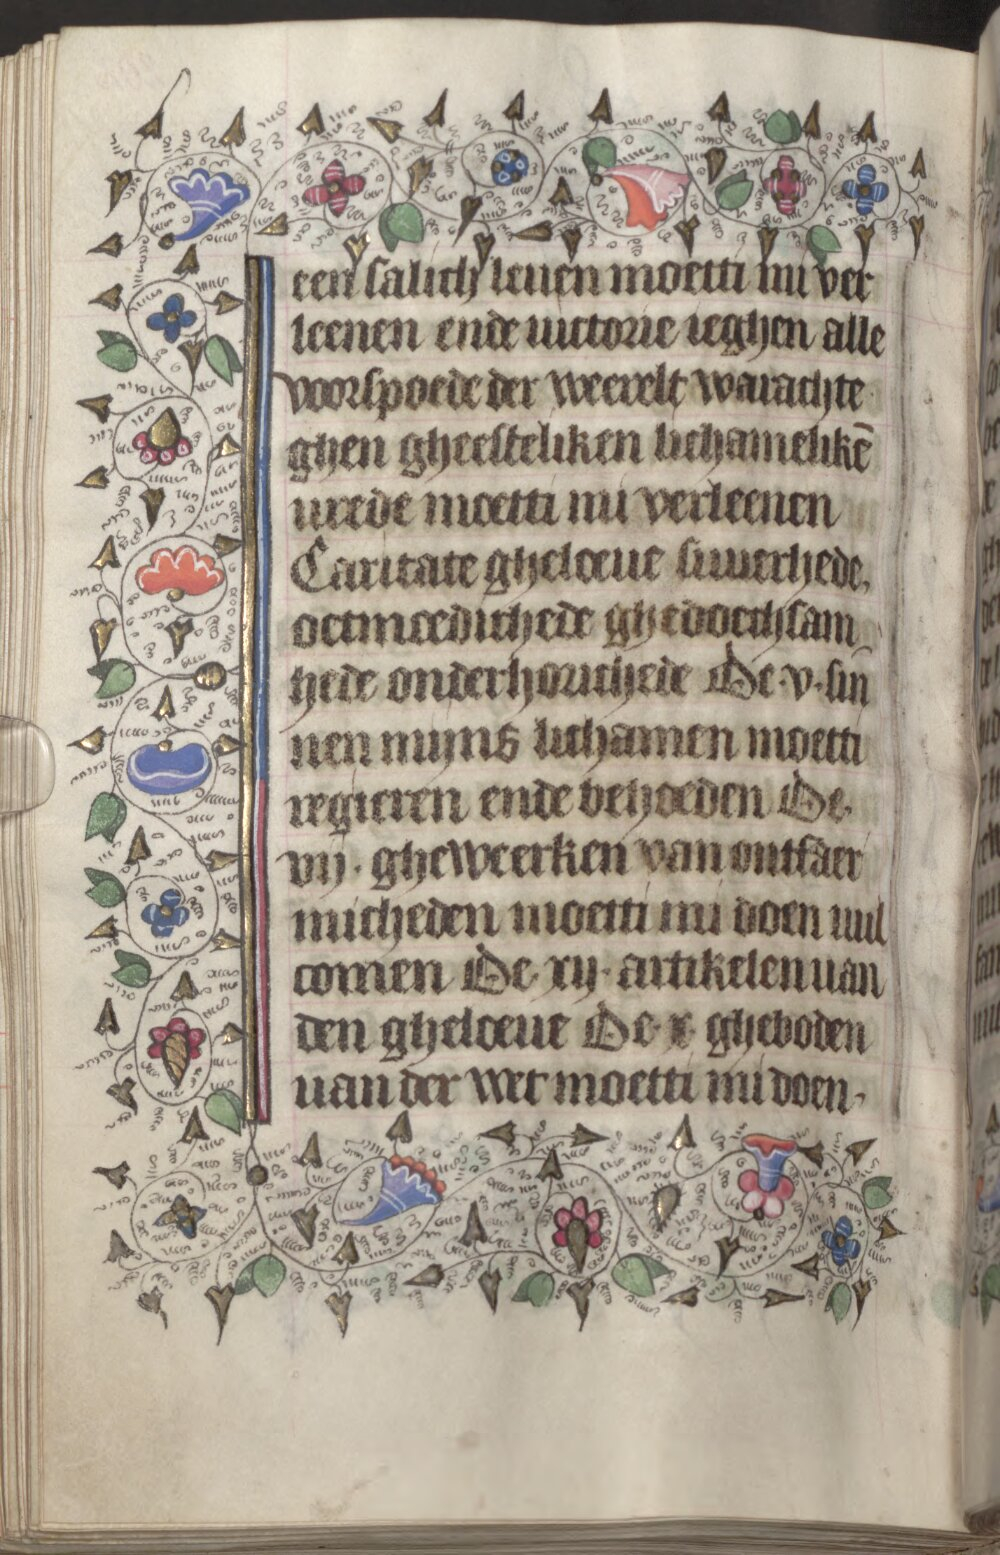 een salich leuen moetti mi ver
leenen ende uictorie ieghen alle
voorspoede der weerelt warachte
ghen gheesteliken lichamelikē
urede moetti mi verleenen
Caritate gheloeue suuerhede,
oetmoedichede ghedoechsam
hede onderhorichede De·v·sin
nen mijns lichamen moetti
regieren ende behoeden De·
vij· gheweerken van ontfaer
micheden moetti mi doen uul
comen De·xij·artikelen uan
den gheloeue De·x·gheboden
uan der wet moetti mi doen·